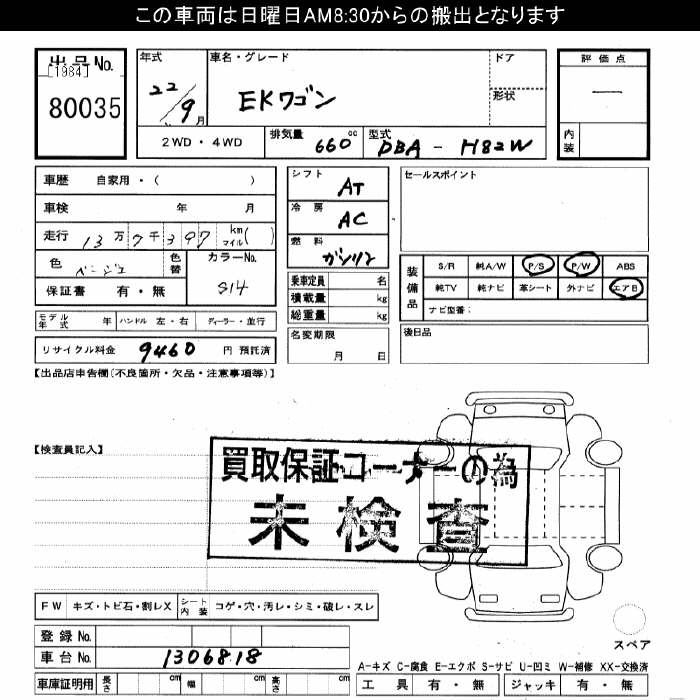 この車両は日曜日AM8:30からの搬出となります
出品No.
[1984]
80035
年式 22/9月
車名・グレード EKワゴン
ドア
形状
評価点
—
内装
2WD・4WD
排気量 660cc
型式 DBA-H82W
車歴 自家用・(
車検 年 月
走行 13万7千397 km マイル( )
色 ベージュ
色替
カラーNo. S14
保証書 有・無
シフト AT
冷房 AC
燃料 ガソリン
乗車定員 名
積載量 kg
総重量 kg
セールスポイント
装備品
S/R 純A/W P/S P/W ABS
純TV 純ナビ 革シート 外ナビ エアB
ナビ型番:
モデル年式 年 ハンドル 左・右 ディーラー・並行
名変期限
月 日
後日品
リサイクル料金 9460 円 預託済
【出品店申告欄(不良箇所・欠品・注意事項等)】
【検査員記入】
買取保証コーナーの為
未検査
FW キズ・トビ石・割レX
シート内装 コゲ・穴・汚レ・シミ・破レ・スレ
登録No.
車台No. 1306818
スペア
A-キズ C-腐食 E-エクボ S-サビ U-凹ミ W-補修 XX-交換済
車庫証明用 長さ cm 幅 cm 高さ cm
工具 有・無 ジャッキ 有・無